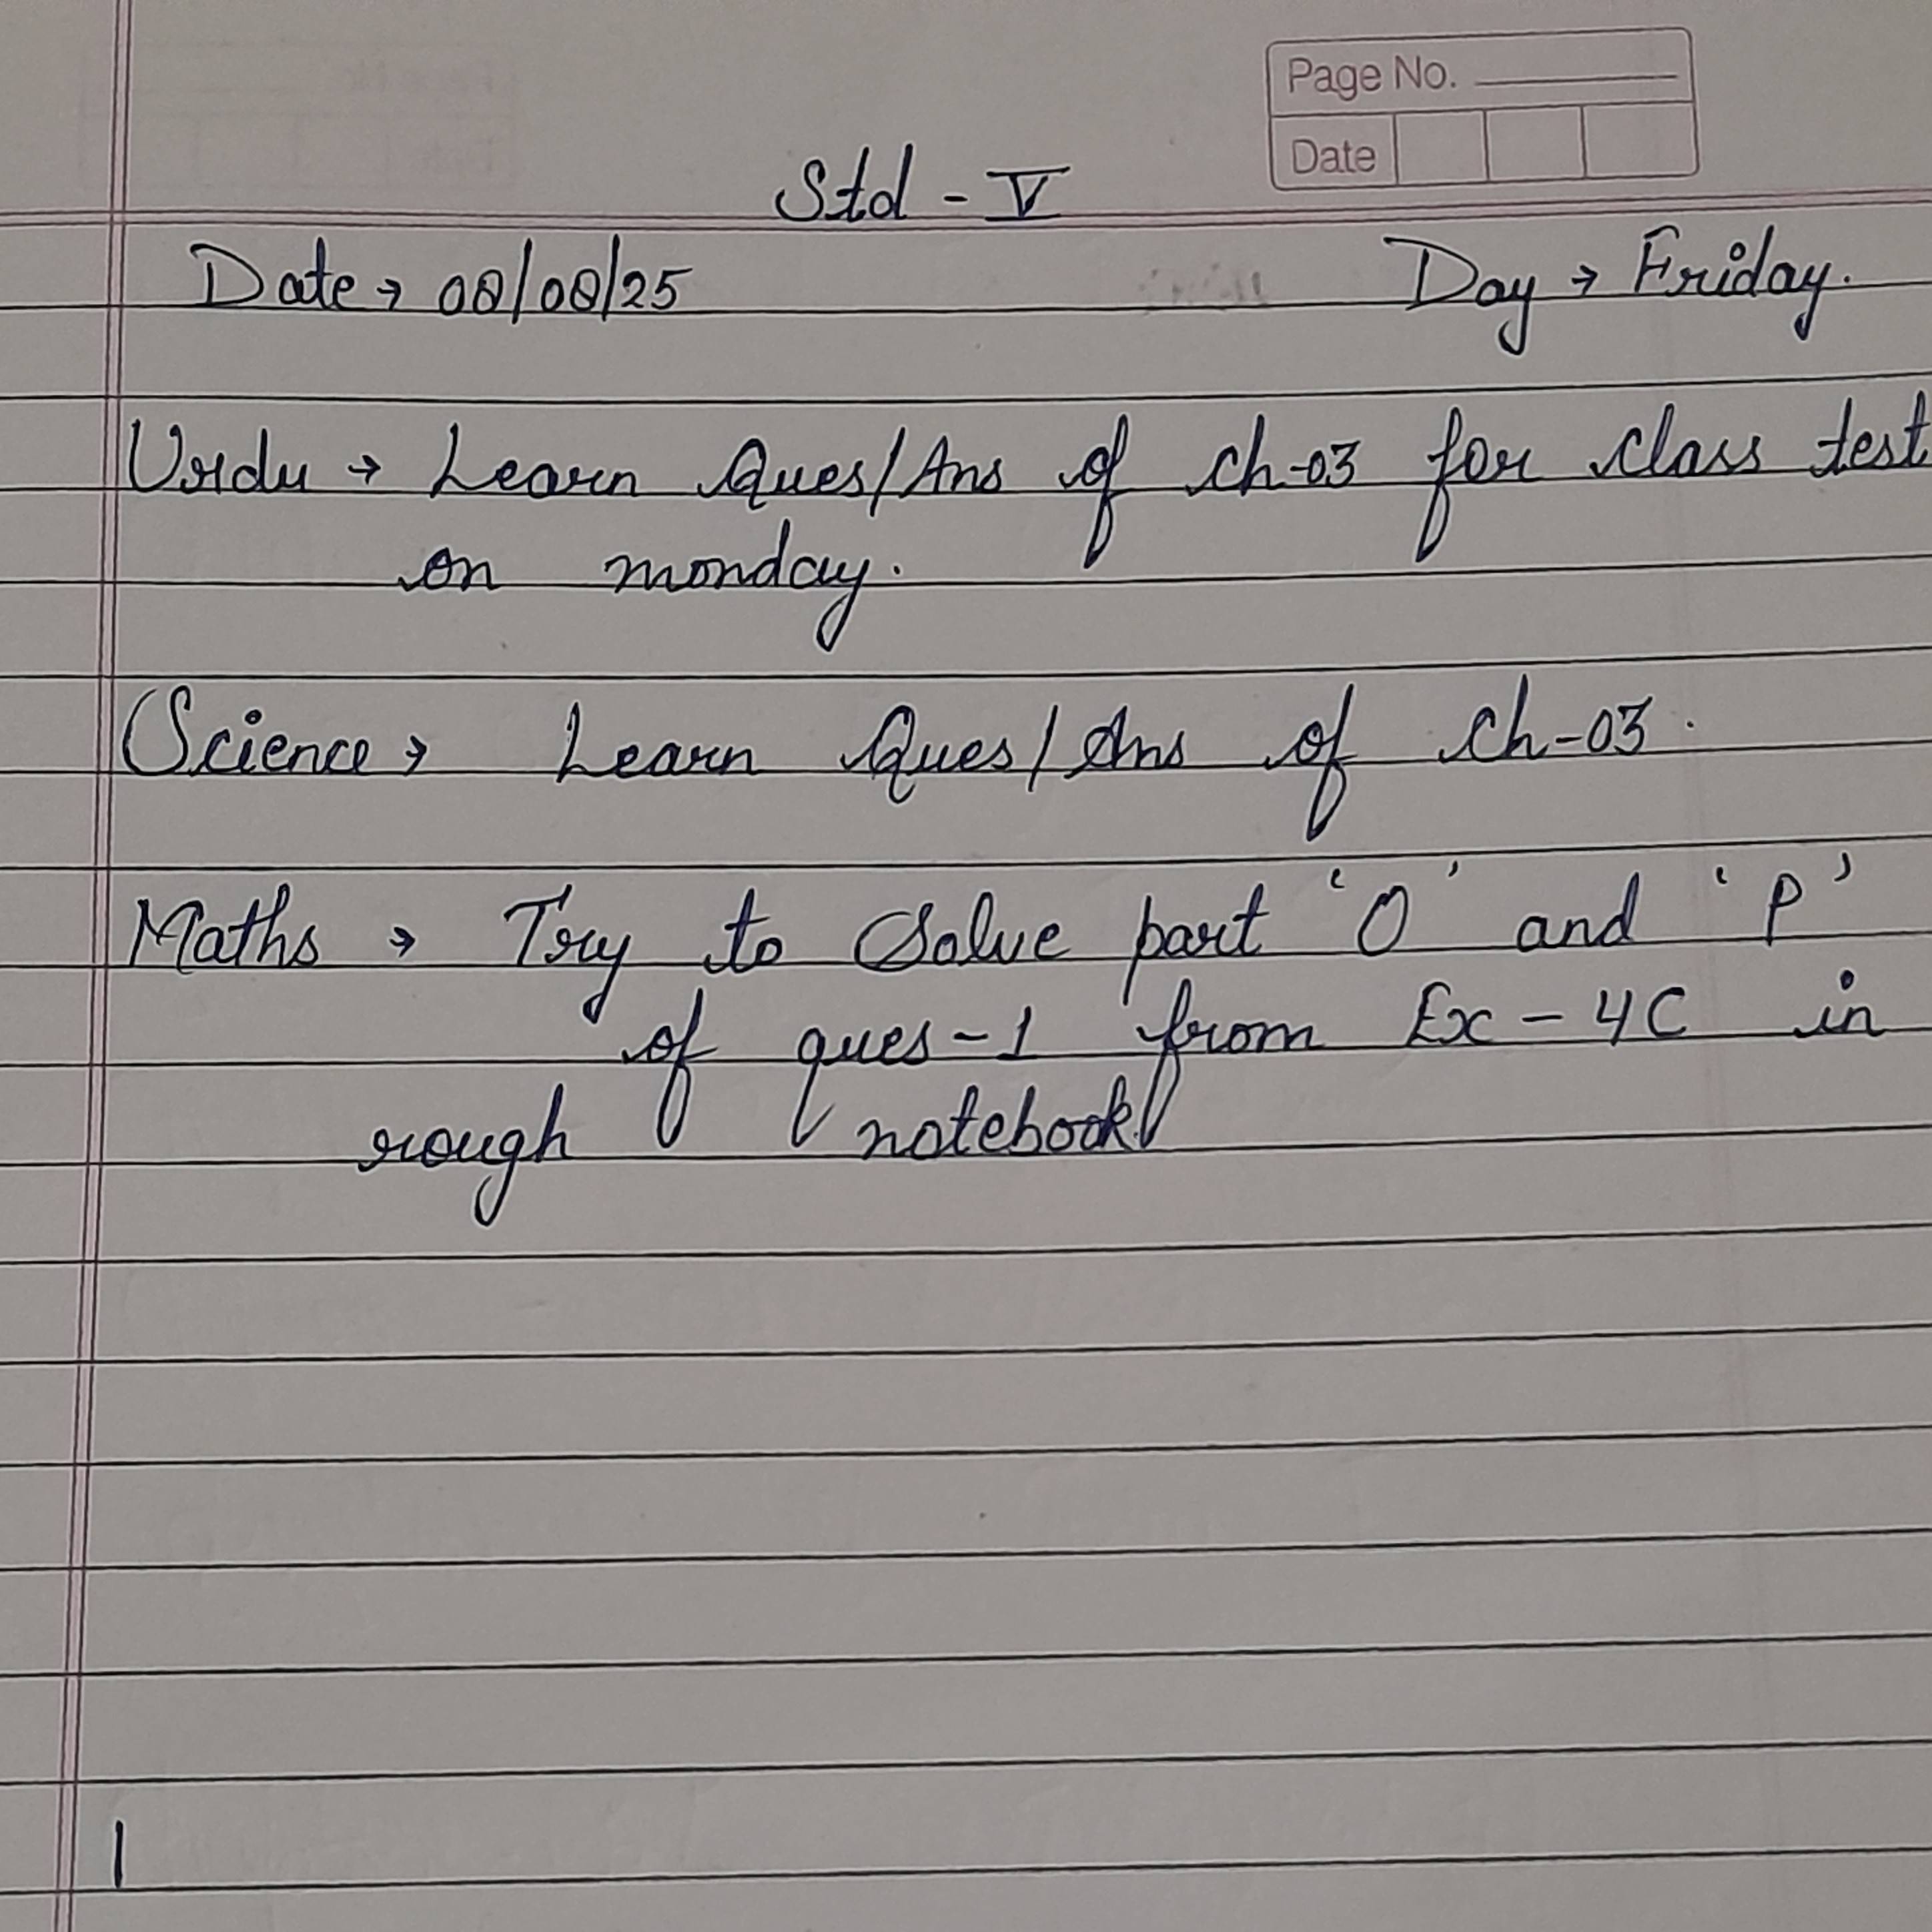 Page No.
Date
Std - V
Date → 08/08/25 Day → Friday.
Urdu → Learn Ques/Ans of ch-03 for class test
on monday.
Science → Learn Ques/Ans of ch-03.
Maths → Try to Solve part 'O' and 'P'
of ques-1 from Ex - 4C in
rough notebook